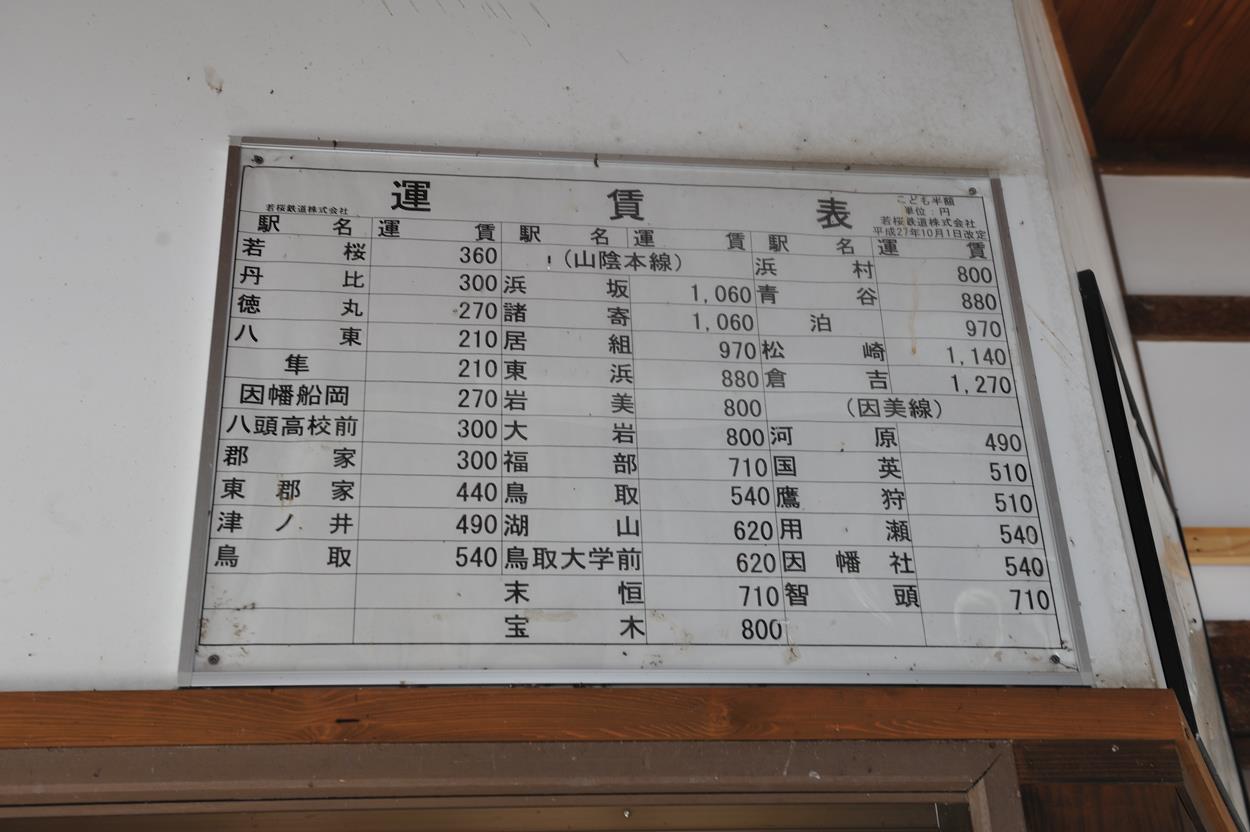 運 賃 表
若桜鉄道株式会社
こども半額
単位：円
若桜鉄道株式会社
平成27年10月1日改定
駅 名 運 賃
若 桜 360
丹 比 300
徳 丸 270
八 東 210
隼 210
因幡船岡 270
八頭高校前 300
郡 家 300
東 郡 家 440
津 ノ 井 490
鳥 取 540
駅 名 運 賃
（山陰本線）
浜 坂 1,060
諸 寄 1,060
居 組 970
東 浜 880
岩 美 800
大 岩 800
福 部 710
鳥 取 540
湖 山 620
鳥取大学前 620
末 恒 710
宝 木 800
駅 名 運 賃
浜 村 800
青 谷 880
泊 970
松 崎 1,140
倉 吉 1,270
（因美線）
河 原 490
国 英 510
鷹 狩 510
用 瀬 540
因 幡 社 540
智 頭 710